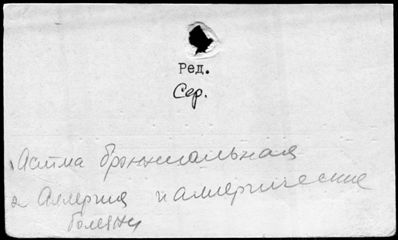 Ред.
Сер.
Астма бронхиальная
и Аллергия и аллергические
болезни